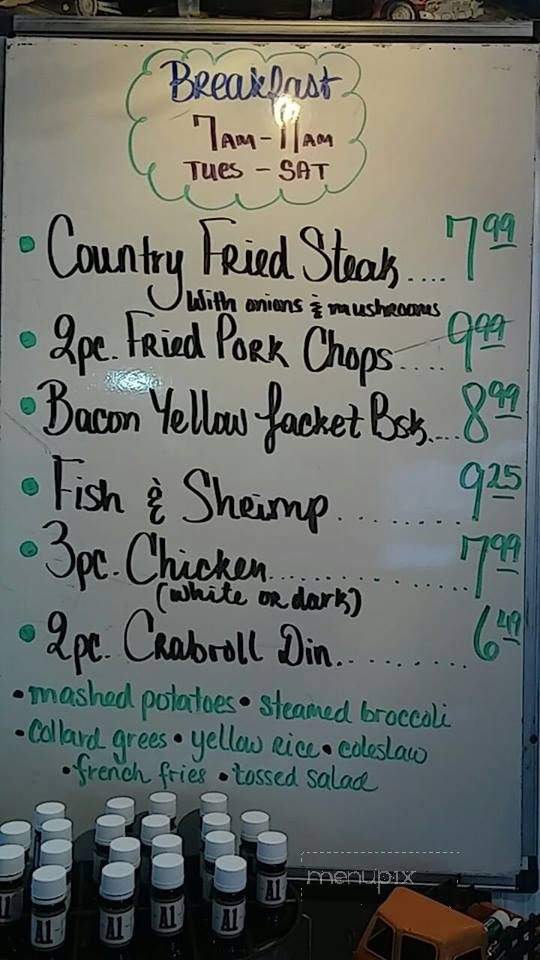 Breakfast
7AM-11AM
Tues - SAT
• Country Fried Steak.... 7.99
With onions & mushrooms
• 2pc. Fried Pork Chops.... 9.99
• Bacon Yellow Jacket Bsk.... 8.99
• Fish & Shrimp........ 9.25
• 3pc. Chicken............ 7.99
(white or dark)
• 2pc. Crabroll Din........ 6.49
• mashed potatoes • steamed broccoli
• Collard grees • yellow rice • coleslaw
• french fries • tossed salad
menupix
A1 A1 A1 A1 A1